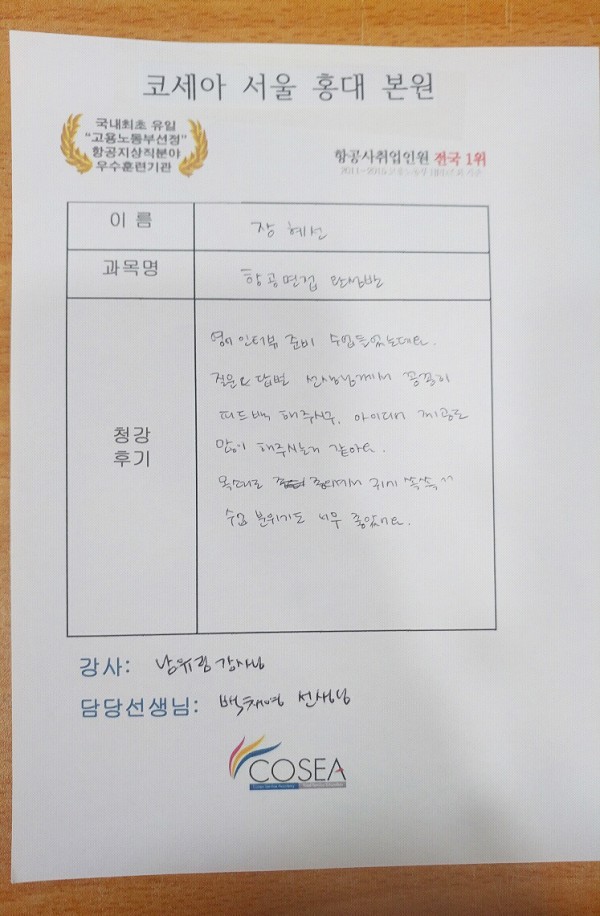 코세아 서울 홍대 본원
국내최초 유일
"고용노동부선정"
항공지상직분야
우수훈련기관
항공사취업인원 전국 1위
이 름
장 혜선
과목명
항공면접 완성반
청강
후기
영어 인터뷰 준비 수업들었는데요.
질문&답변 선생님께서 꼼꼼히
피드백 해주시구, 아이디어 제공도
많이 해주시는거 같아요.
목소리도 귀에 쏙쏙^^
수업 분위기도 너무 좋았어요.
강사:
남유림 강사님
담당선생님:
백채영 선생님
COSEA